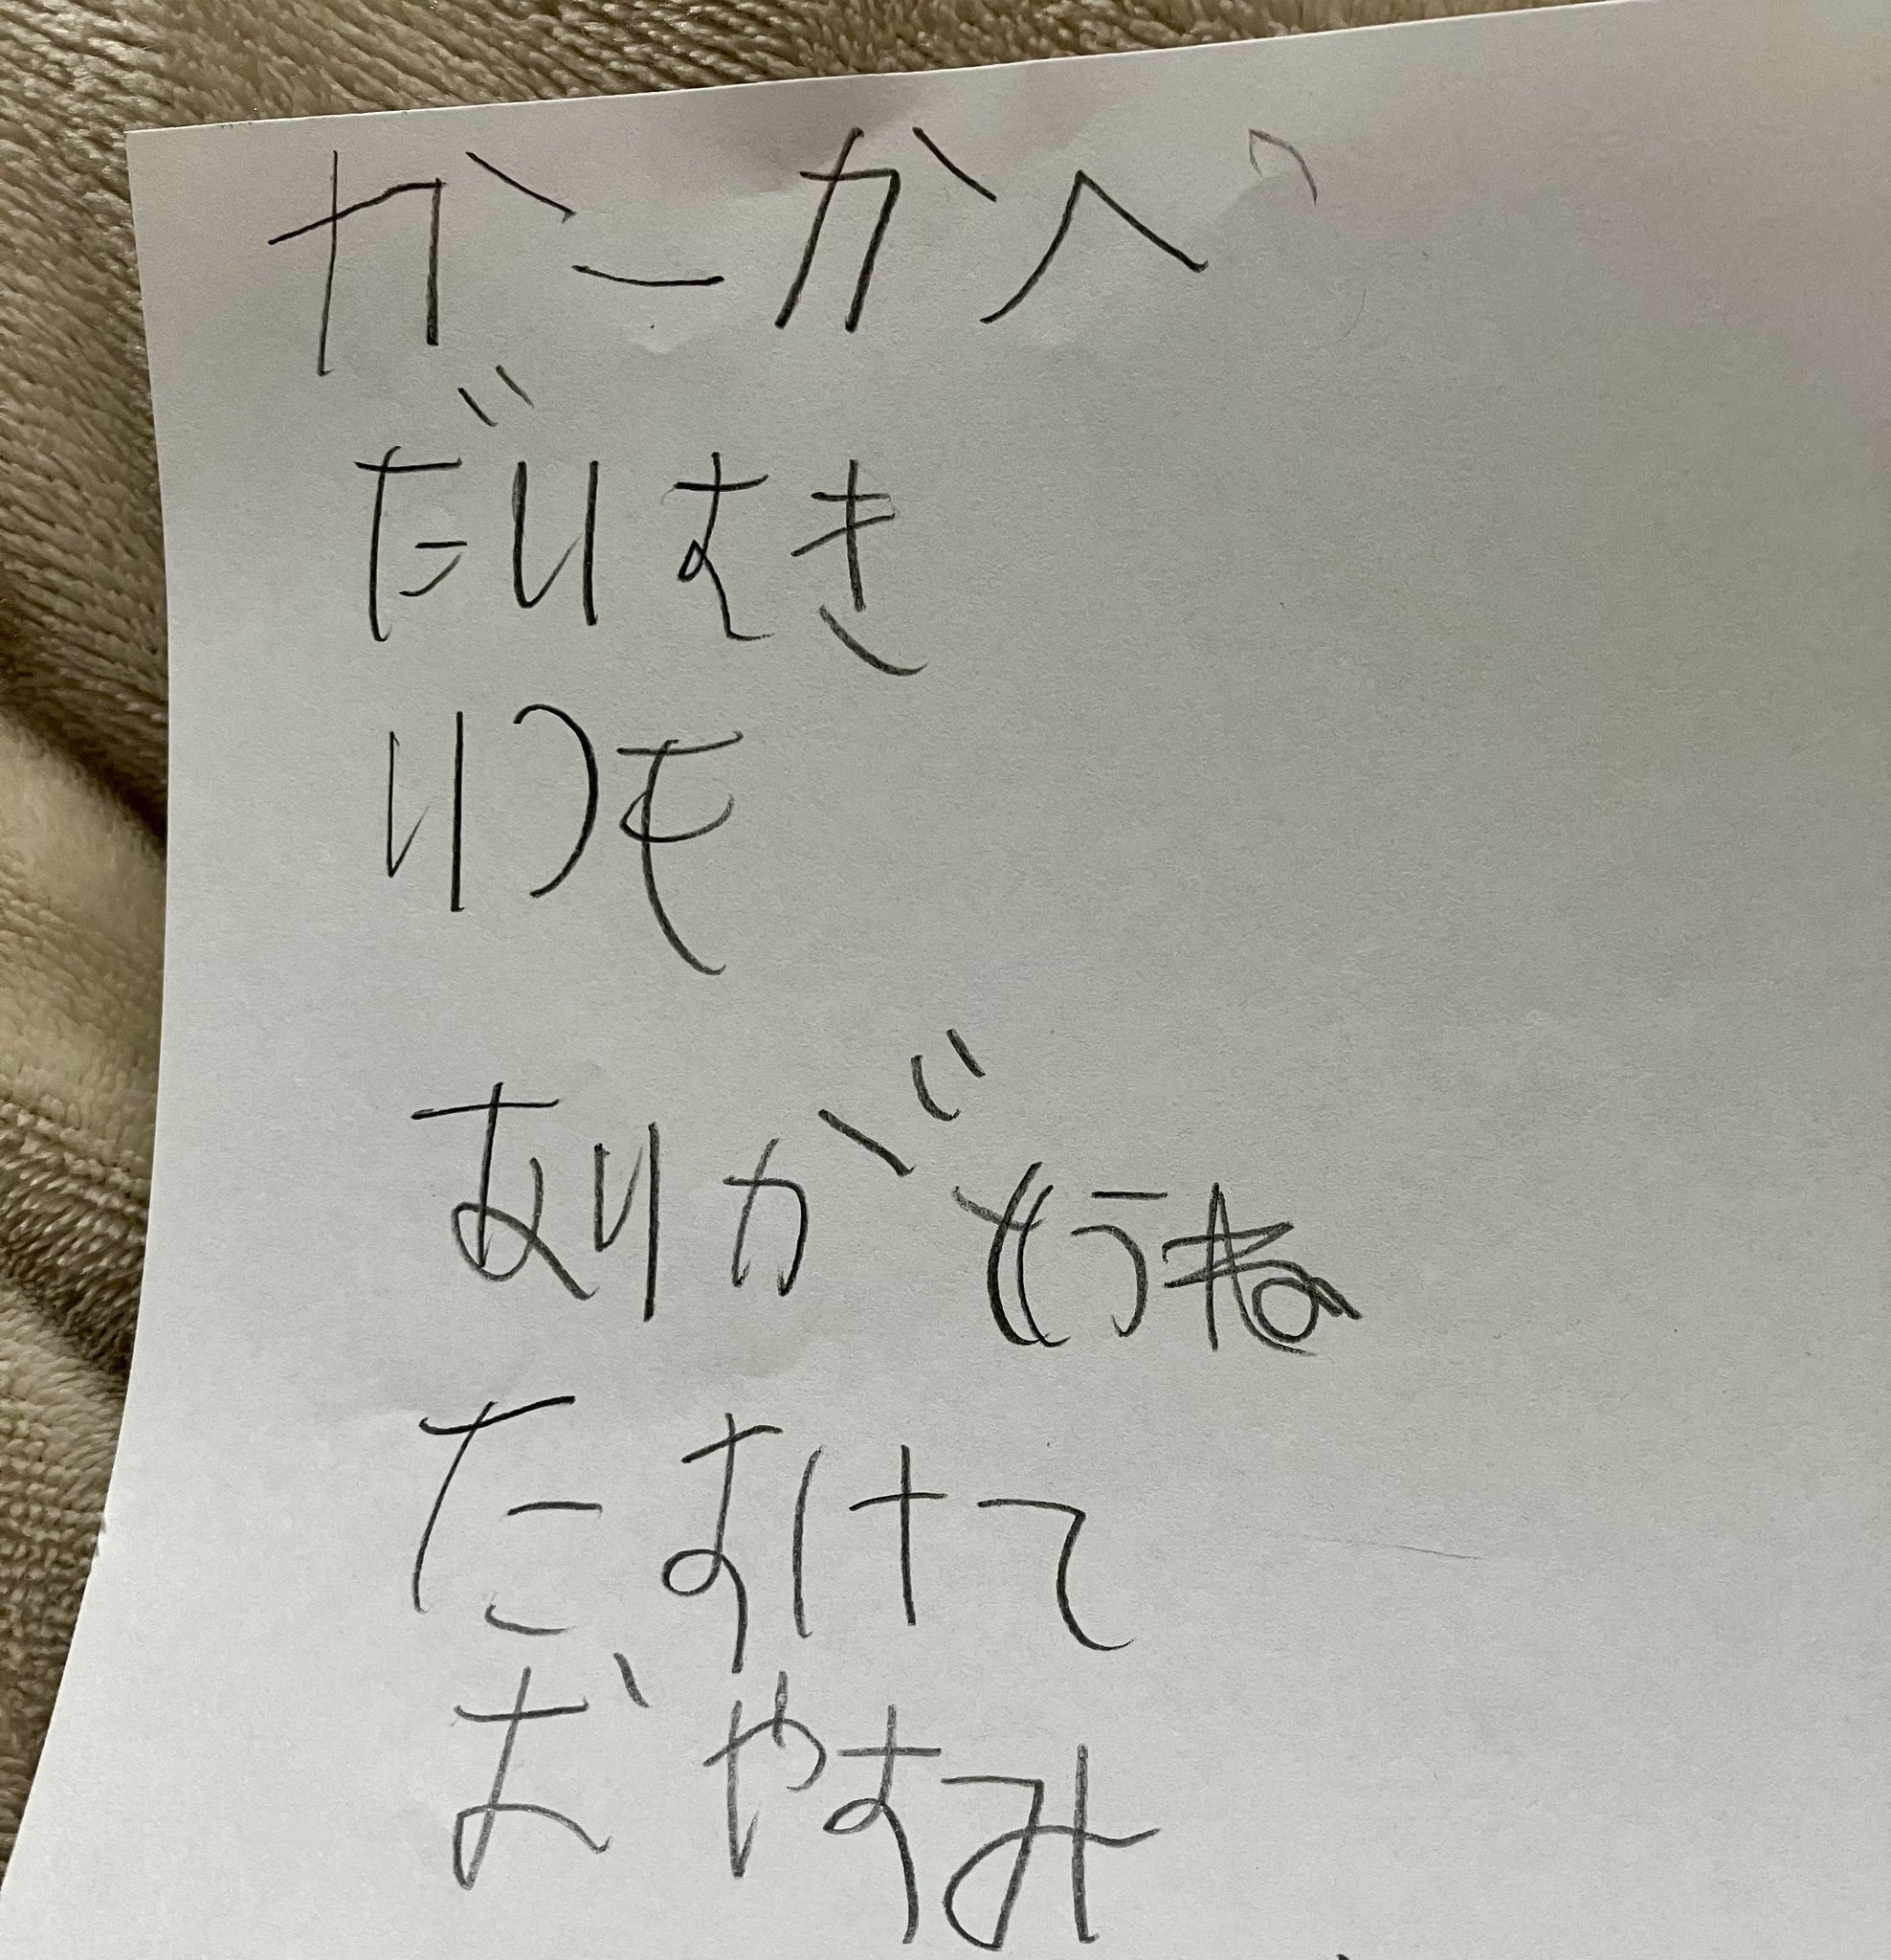 かーかへ
だいすき
いつも
ありがどうね
たすけて
おやすみ